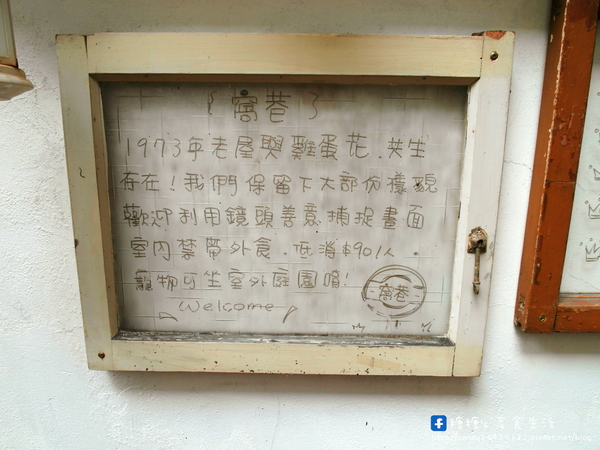 { 窩巷 }
1973年老屋與雞蛋花.共生
存在！我們保留下大部份樣貌
歡迎利用鏡頭善意捕捉畫面
室內禁帶外食.低消$90/人.
寵物可坐室外庭園唷！
Welcome
窩巷